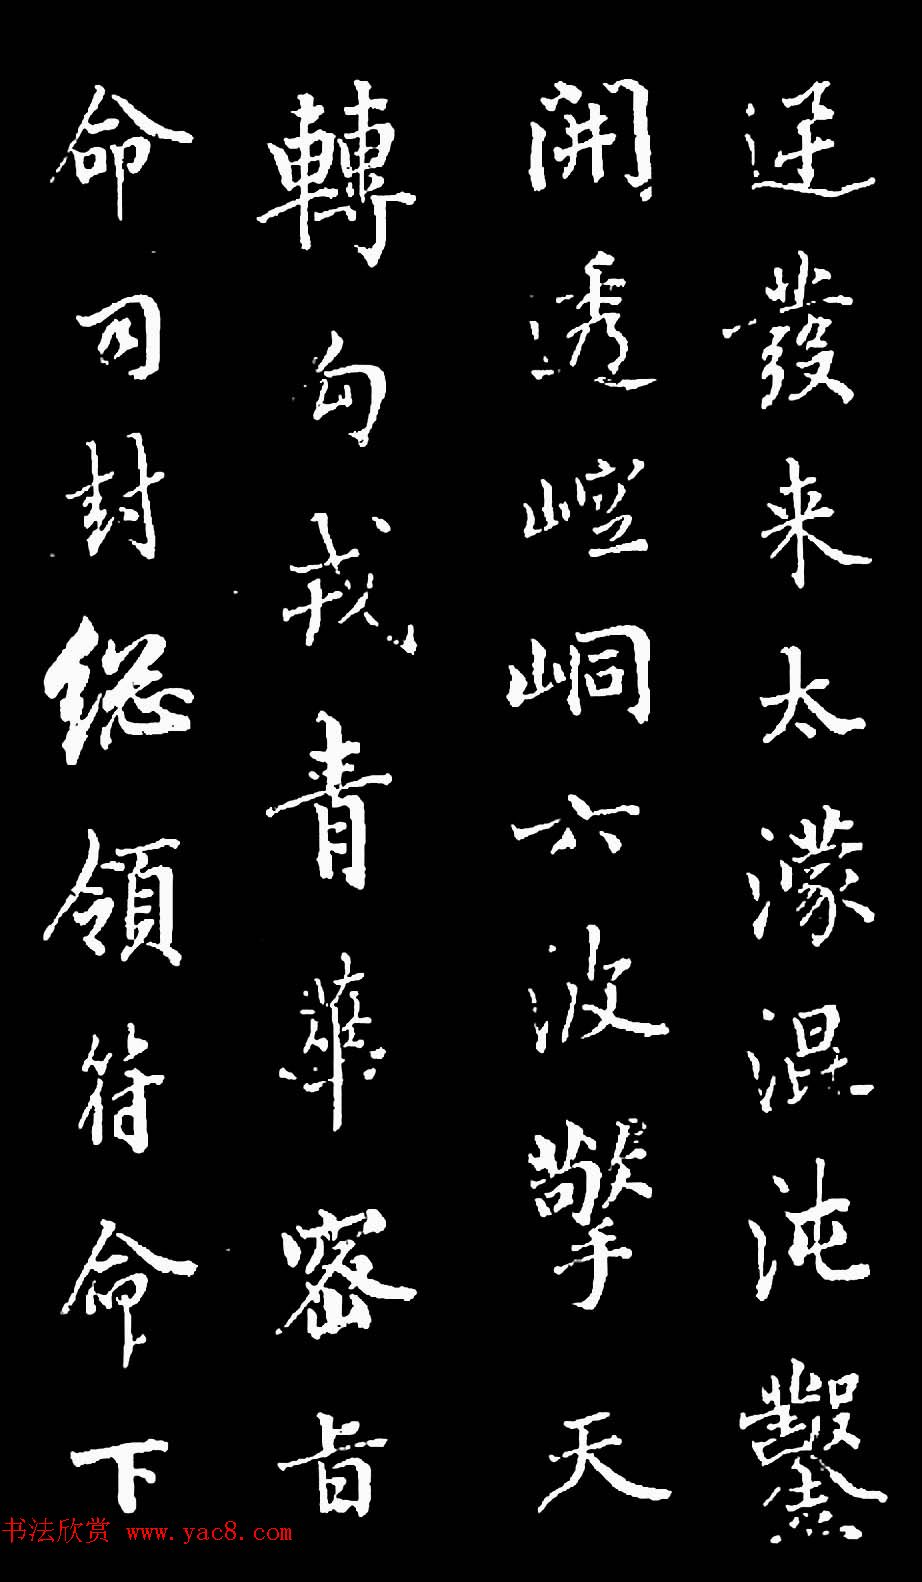 迋發来太濛混沌鑿
開透崆峒六波擎天
轉勾戎青華密旨
命司封総領符命下
书法欣赏 www.yac8.com